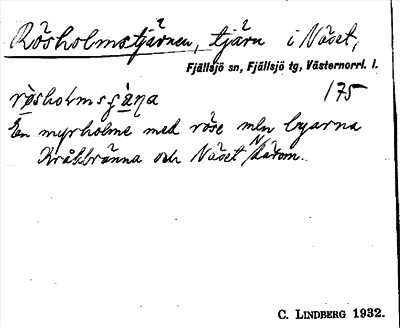 Rösholmstjärnen, tjärn i Näset,
Fjällsjö sn, Fjällsjö tg, Västernorrl. l.
175
En myrholme med röse mln byarna
Kråkbränna och Näset N därom.
C. LINDBERG 1932.